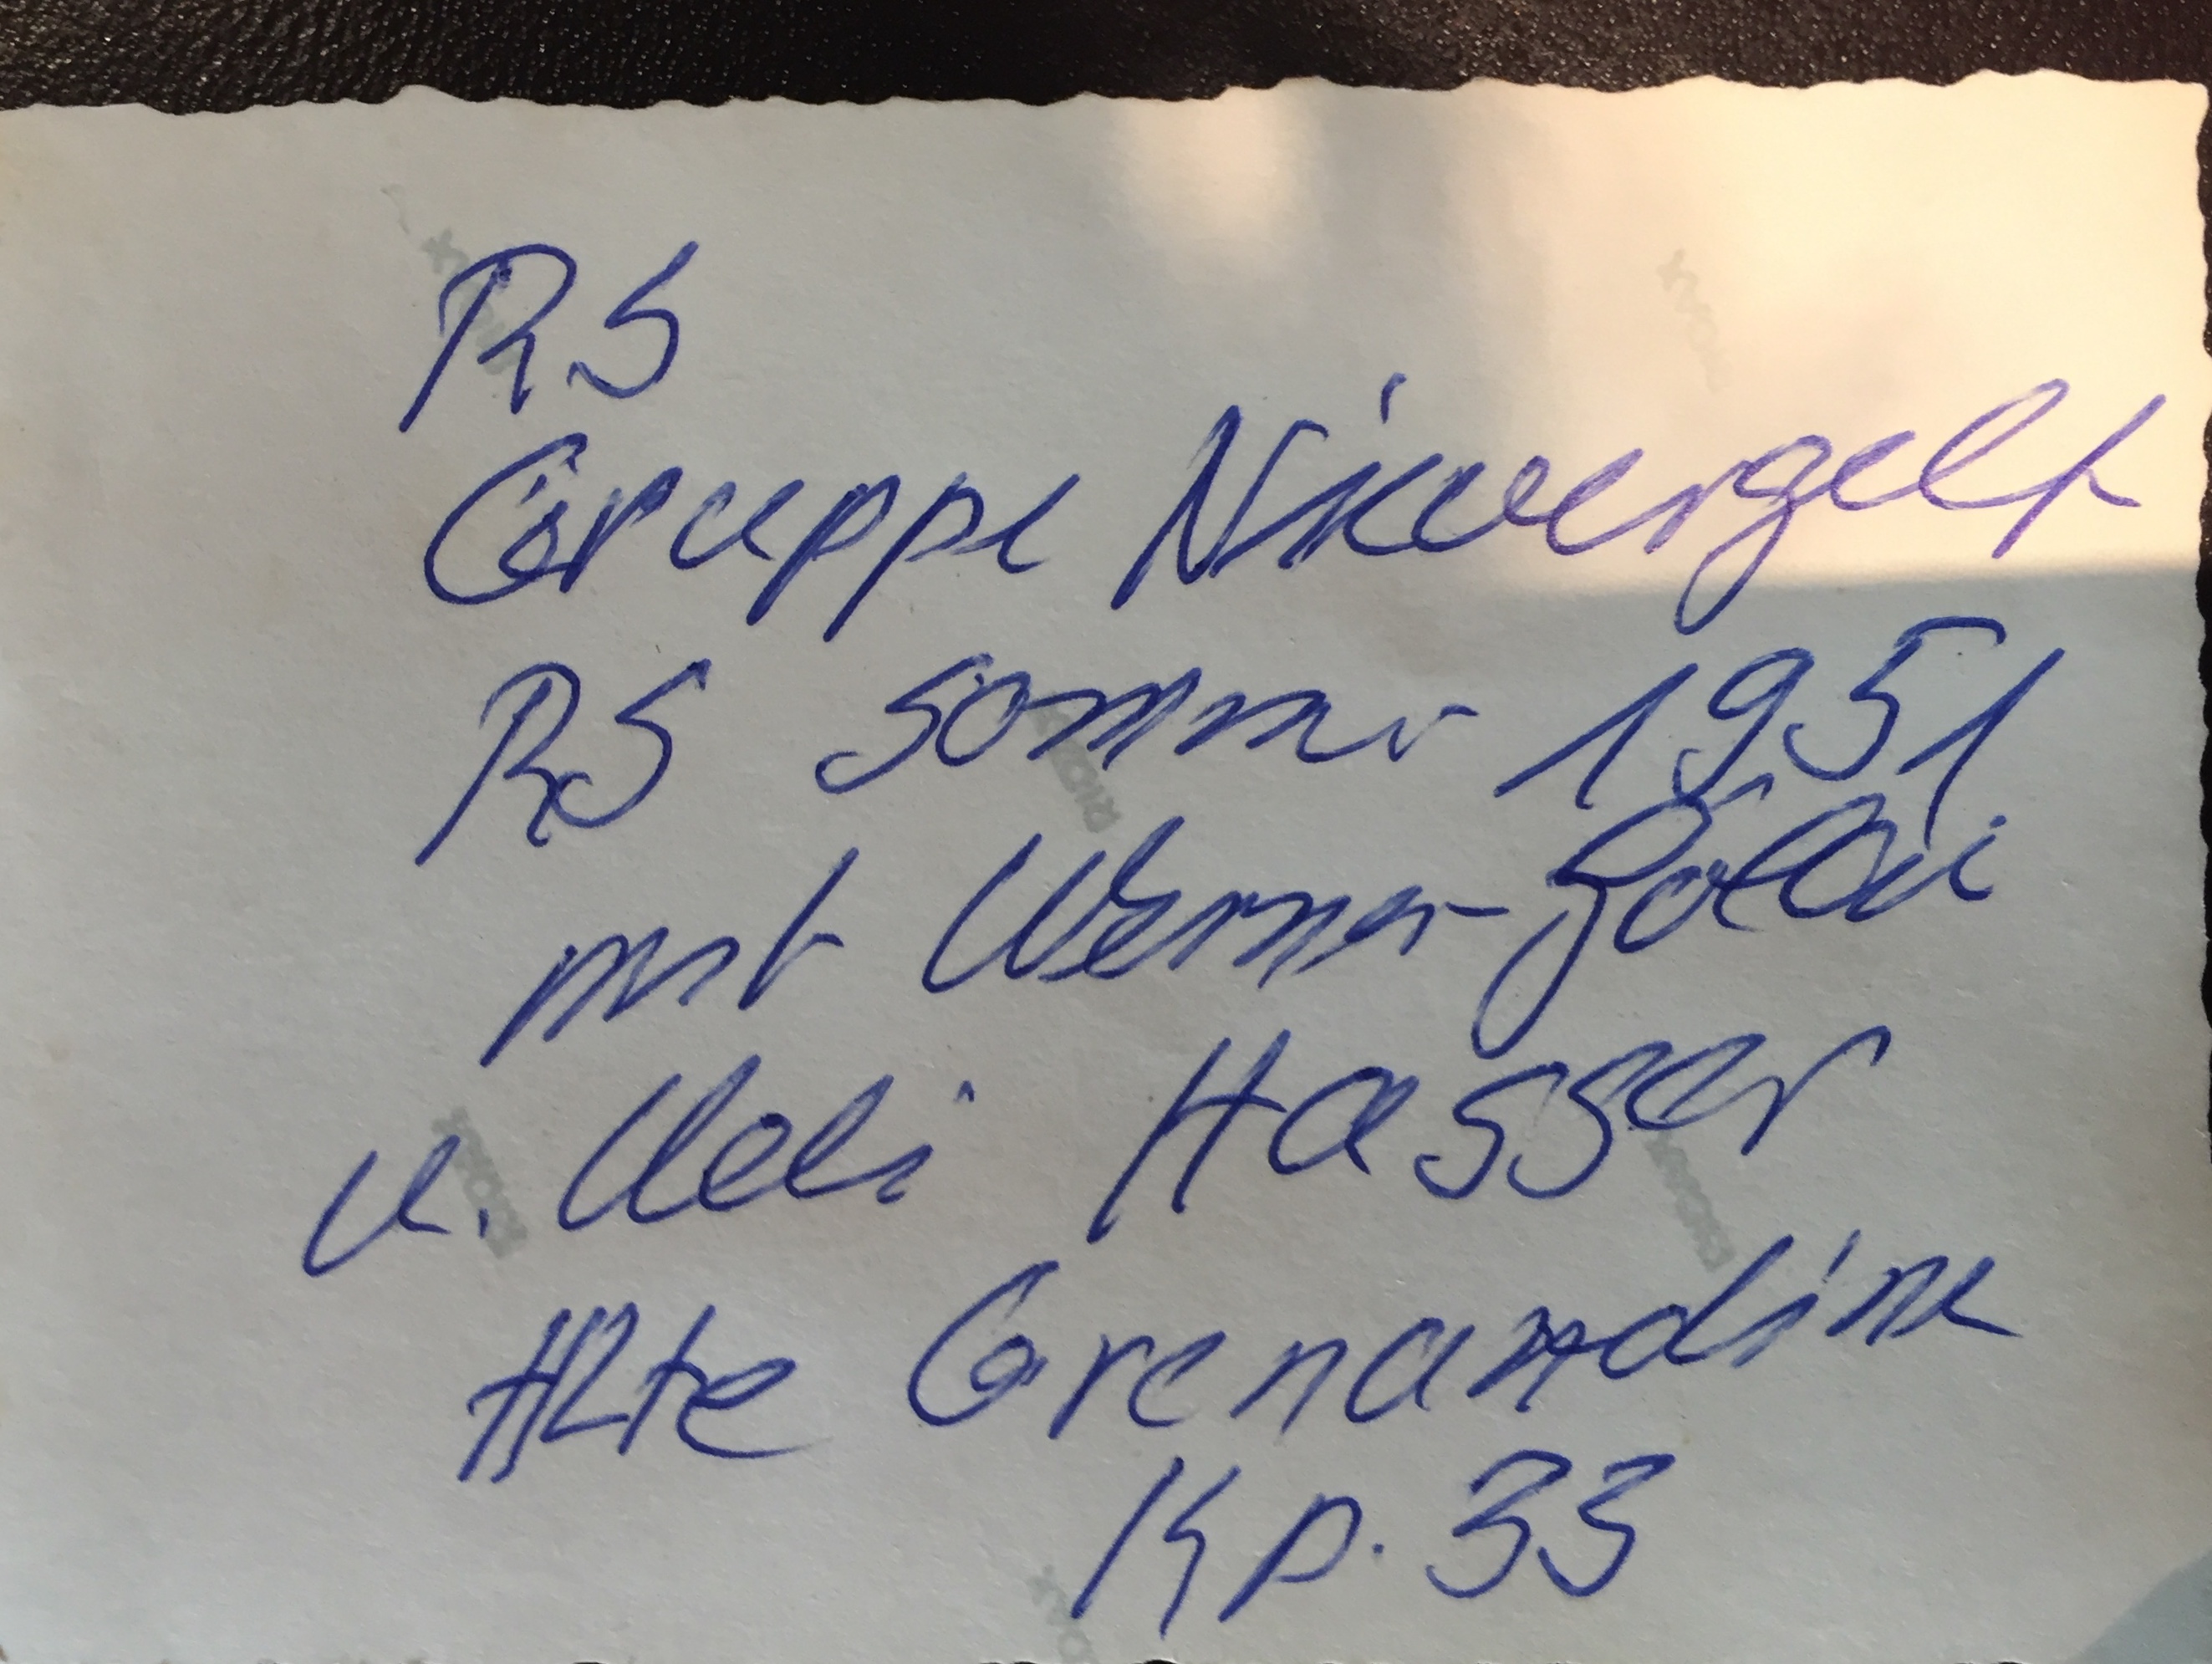 RS
Gruppe Nievergelt
RS Sommer 1951
mit Werner
u. Ueli Hasser
Alte Grenandine
Kp. 33